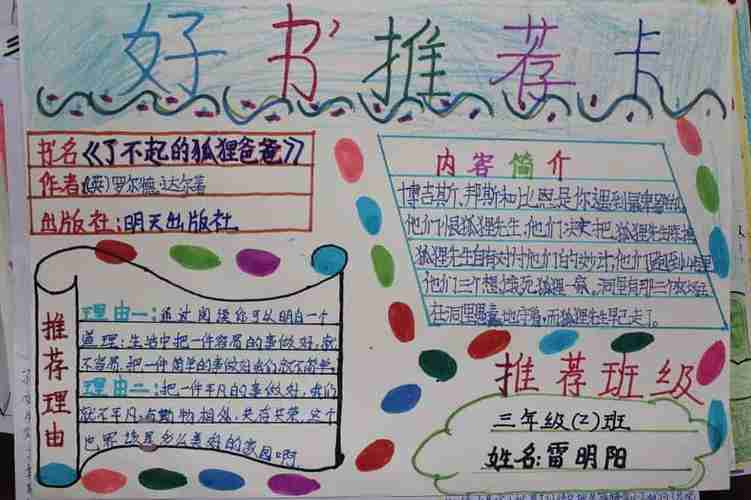 好书推荐卡
书名《了不起的狐狸爸爸》
作者(英)罗尔德·达尔著
出版社:明天出版社
内容简介
博吉斯、邦斯和比恩是你遇到最卑鄙的
他们恨狐狸先生,他们决定把狐狸先生
狐狸先生自有对付他们的妙计,他们
他们三个想 死狐狸一家。洞里有那三个
在洞里 地守着,而狐狸先生早已走了。
推荐理由
理由一:通过阅读你可以明白一个
道理:生活中把一件容易的事做好,就
不容易,把一件简单的事做好我们就不简单。
理由二:把一件平凡的事做好,我们
就不平凡;动物相 ,共存共荣,这个
世界该是多么美好的家园啊
推荐班级
三年级(2)班
姓名:雷明阳